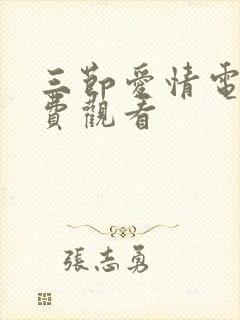 三節愛情電
費觀看
張志勇